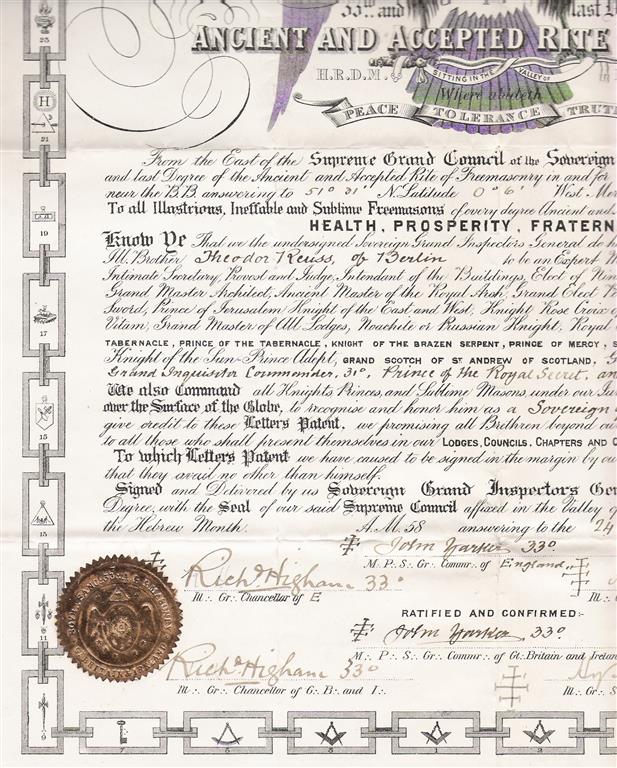 33rd and last D
ANCIENT AND ACCEPTED RITE
H.R.D.M. SITTING IN THE VALLEY OF
Where abideth
PEACE TOLERANCE TRUT
From the East of the Supreme Grand Council of the Sovereign
and last Degree of the Ancient and Accepted Rite of Freemasonry in and for
near the B.B. answering to 51° 31' N. Latitude 0° 6' West Mer
To all Illustrious, Ineffable and Sublime Freemasons of every degree Ancient and
HEALTH, PROSPERITY, FRATERN
Know Ye That we the undersigned Sovereign Grand Inspectors General do h
Ill. Brother Theodor Reuss, of Berlin to be an Expert M
Intimate Secretary, Provost and Judge, Intendent of the Buildings, Elect of Nin
Grand Master Architect, Ancient Master of the Royal Arch, Grand Elect
Sword, Prince of Jerusalem Knight of the East and West, Knight Rose Croix
Vitam, Grand Master of All Lodges, Noachite or Russian Knight, Royal
TABERNACLE, PRINCE OF THE TABERNACLE, KNIGHT OF THE BRAZEN SERPENT, PRINCE OF MERCY, S
Knight of the Sun-Prince Adept, GRAND SCOTCH OF ST ANDREW OF SCOTLAND, G
Grand Inquisitor Commander, 31°, Prince of the Royal Secret, an
We also Command all Knights, Princes, and Sublime Masons, under our Jur
over the Surface of the Globe, to recognise and honor him as a Sovereign
give credit to these Letters Patent, we promising all Brethren beyond
to all those who shall present themselves in our LODGES, COUNCILS, CHAPTERS AND C
To which Letters Patent we have caused to be signed in the margin by ou
that they avail no other than himself.
Signed and Delivered by us Sovereign Grand Inspectors Gen
Degree, with the Seal of our said Supreme Council affixed in the Valley o
the Hebrew Month A.M. 58 answering to the 24
John Yarker 33°
M. P. S. Gr. Commr. of England
Richd Higham 33°
Ill. Gr. Chancellor of E Ill. G
RATIFIED AND CONFIRMED:-
John Yarker 33°
M. P. S. Gr. Commr. of Gt. Britain and Irelan
Richd Higham 33°
Ill. Gr. Chancellor of G. B. and I. Ill. Gr. S
23
H
21
19
17
15
13
11
9
7
5
3
1
2